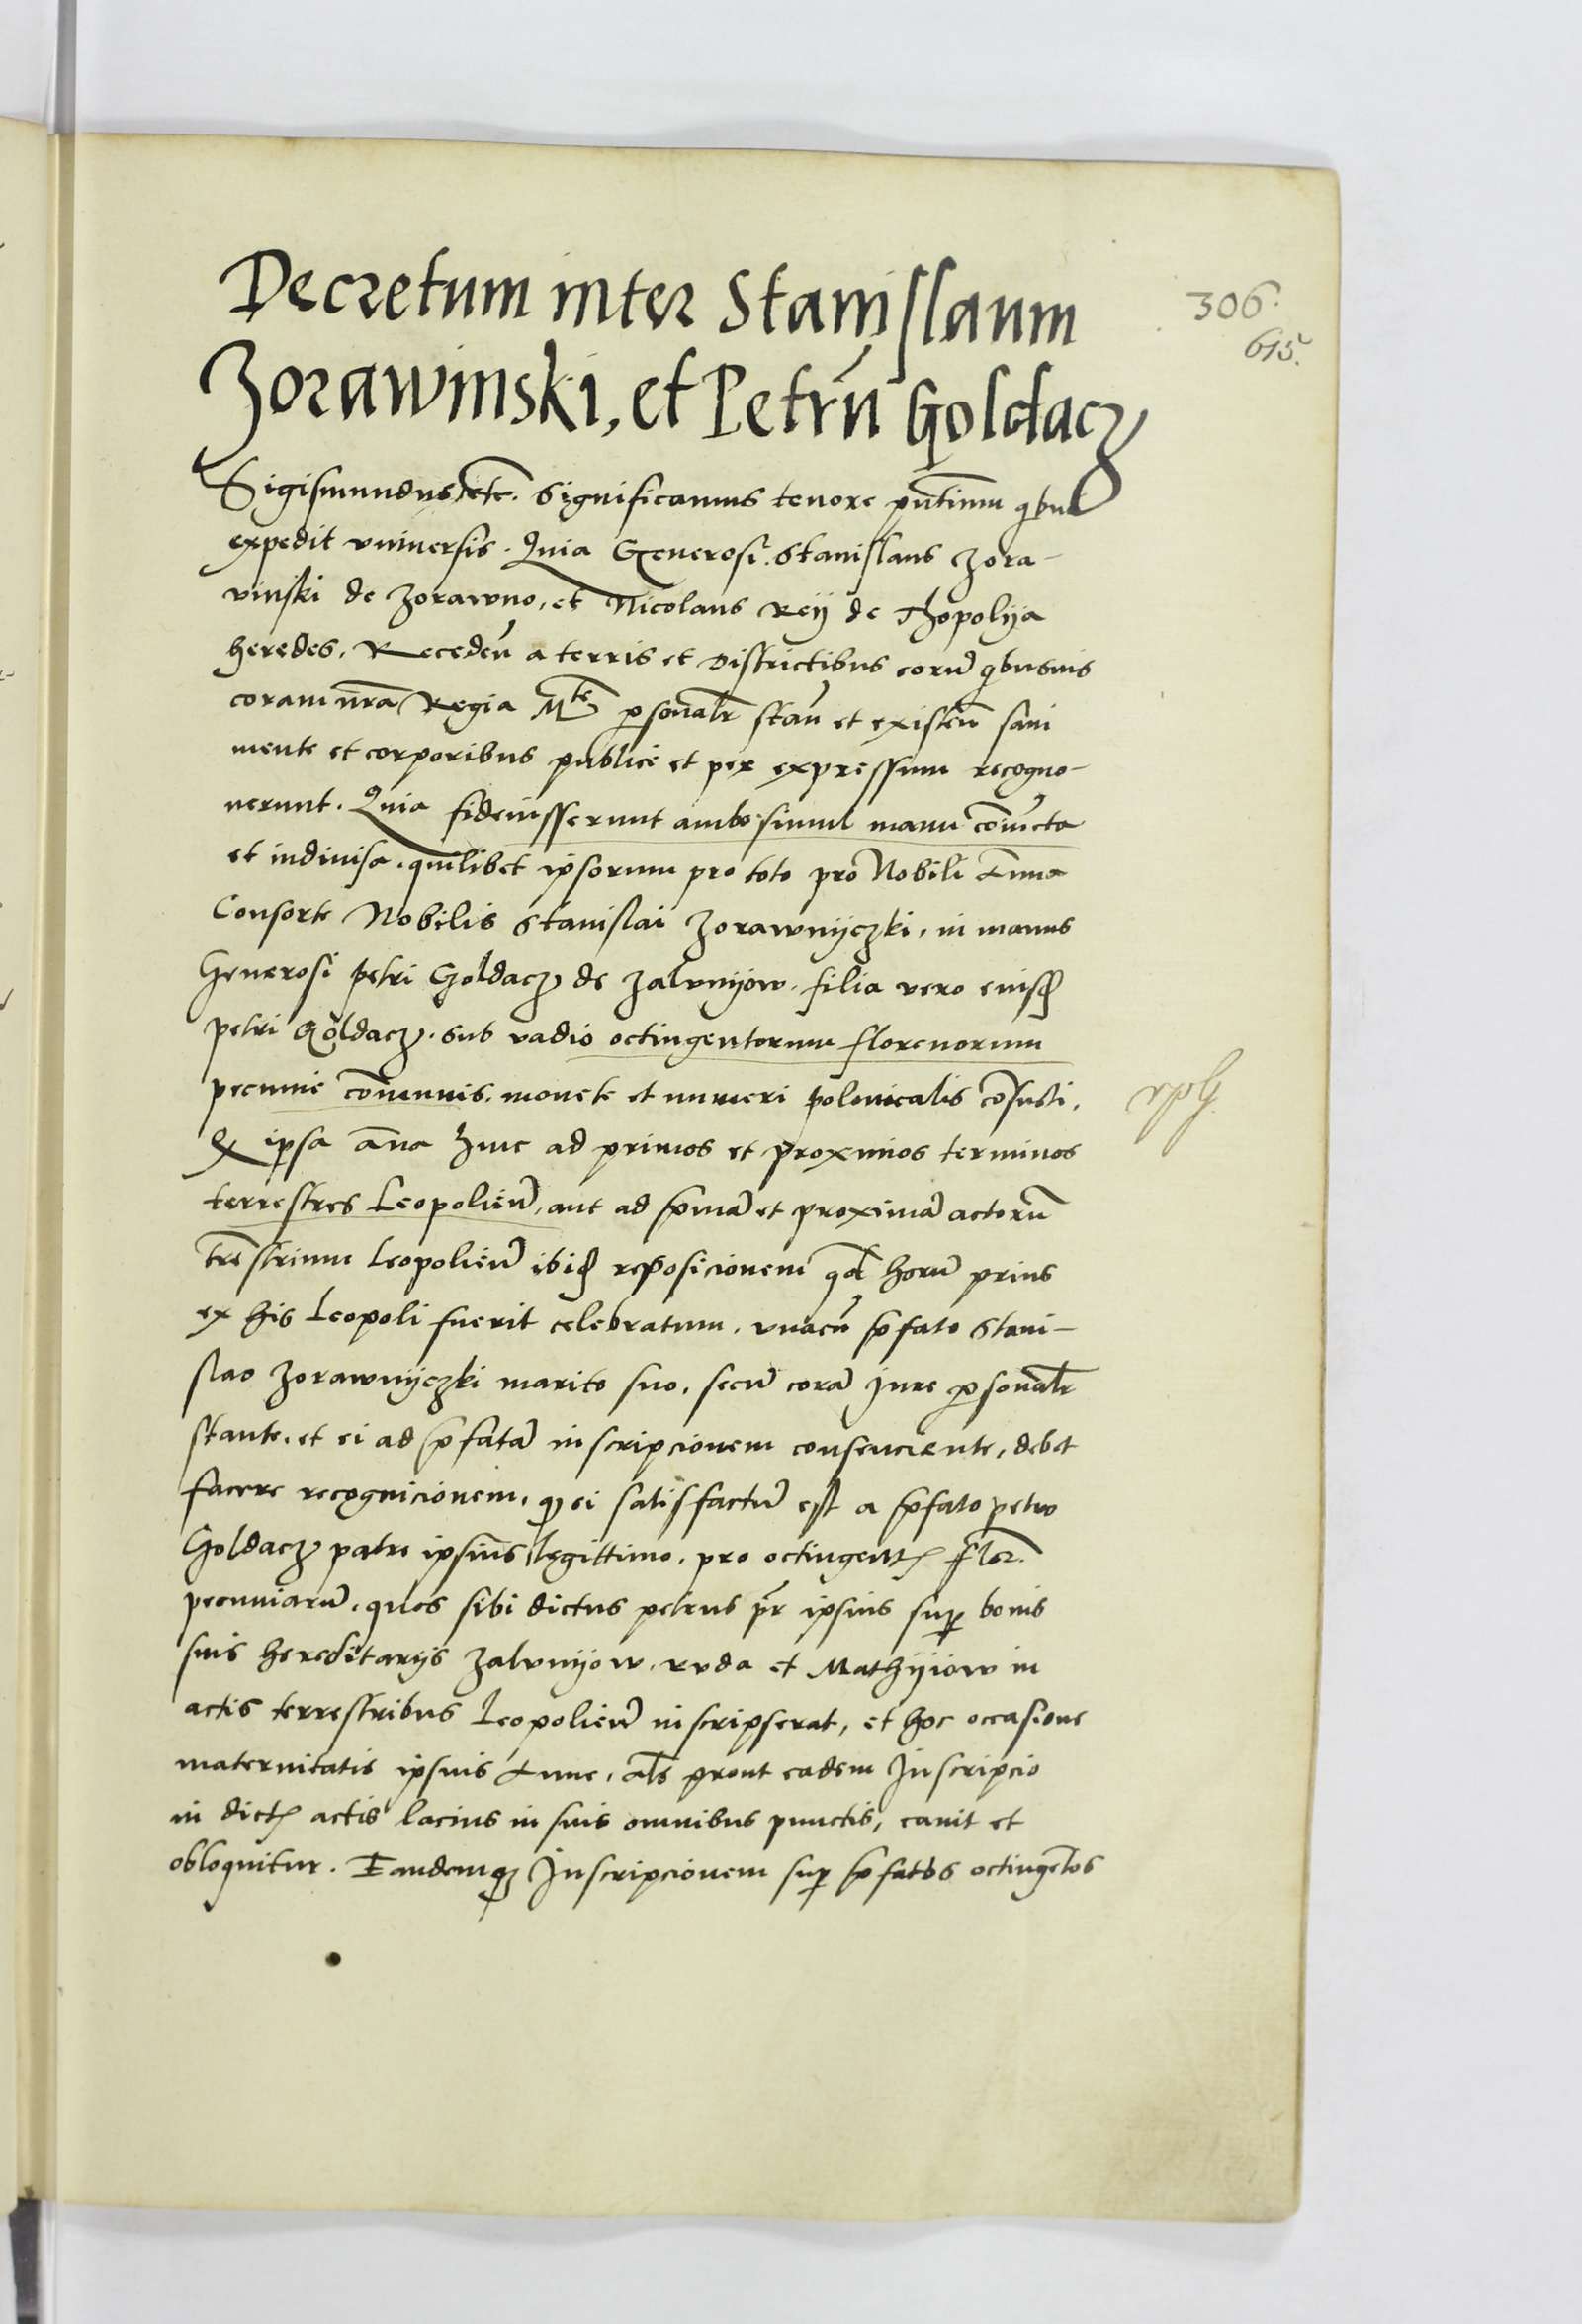 Decretum inter Stanislaum
306.
615.
Zorawinski, et Petrū Goldacz
Sigismundus etc. Significamus tenore pntium qbus
expedit vniversis. Quia Generosi. Stanislaus Zora-
vinski de Zorawno, et Nicolaus Reij de Thopolija
heredes. Receden̄ a terris et Districtibus eorū qbusuis
coram nrā Regia Mte psonalr stan̄ et existen̄ sani
mente et corporibus publice et per expressum recogno-
uerunt. Quia fideiusserunt ambo simul manu coniūcta
et indiuisa. quilibet ipsorum pro toto pro Nobili Anna
Consorte Nobilis Stanislai Zorawnijczki, in manus
Generosi petri Goldacz de Zalvnijow. filia vero eiusd
petri Goldacz. sub vadio octingentorum florenorum
pecunie cōmunis. monete et numeri polonicalis cōsueti.
Q ipsa āna hinc ad primos et proximos terminos
terrestres Leopolien̄, aut ad pmā et proximā actorū
trēstrium Leopolien̄ ibid reposicionem qd horū prius
ex his Leopoli fuerit celebratum. vnacū pfato Stani-
slao Zorawnijczki marito suo. secū corā Jure psonalr
stante. et ei ad pfatā inscripcionem consenciente, debet
facere recognicionem. q ei satisfactū est a pfato petro
Goldacz patre ipsius legittimo. pro octingent flor.
pecuniarū. quos sibi dictus petrus pr ipsius sup bonis
suis hereditarijs Zalvnijow. rvda et Mathijiow in
actis terrestribus Leopolien̄ inscripserat, et hoc occasione
maternitatis ipsius Anne, als prout eadem Inscripcio
in dict actis lacius in suis omnibus punctis, canit et
obloquitur. Eandemq Inscripcionem sup pfatos octingētos